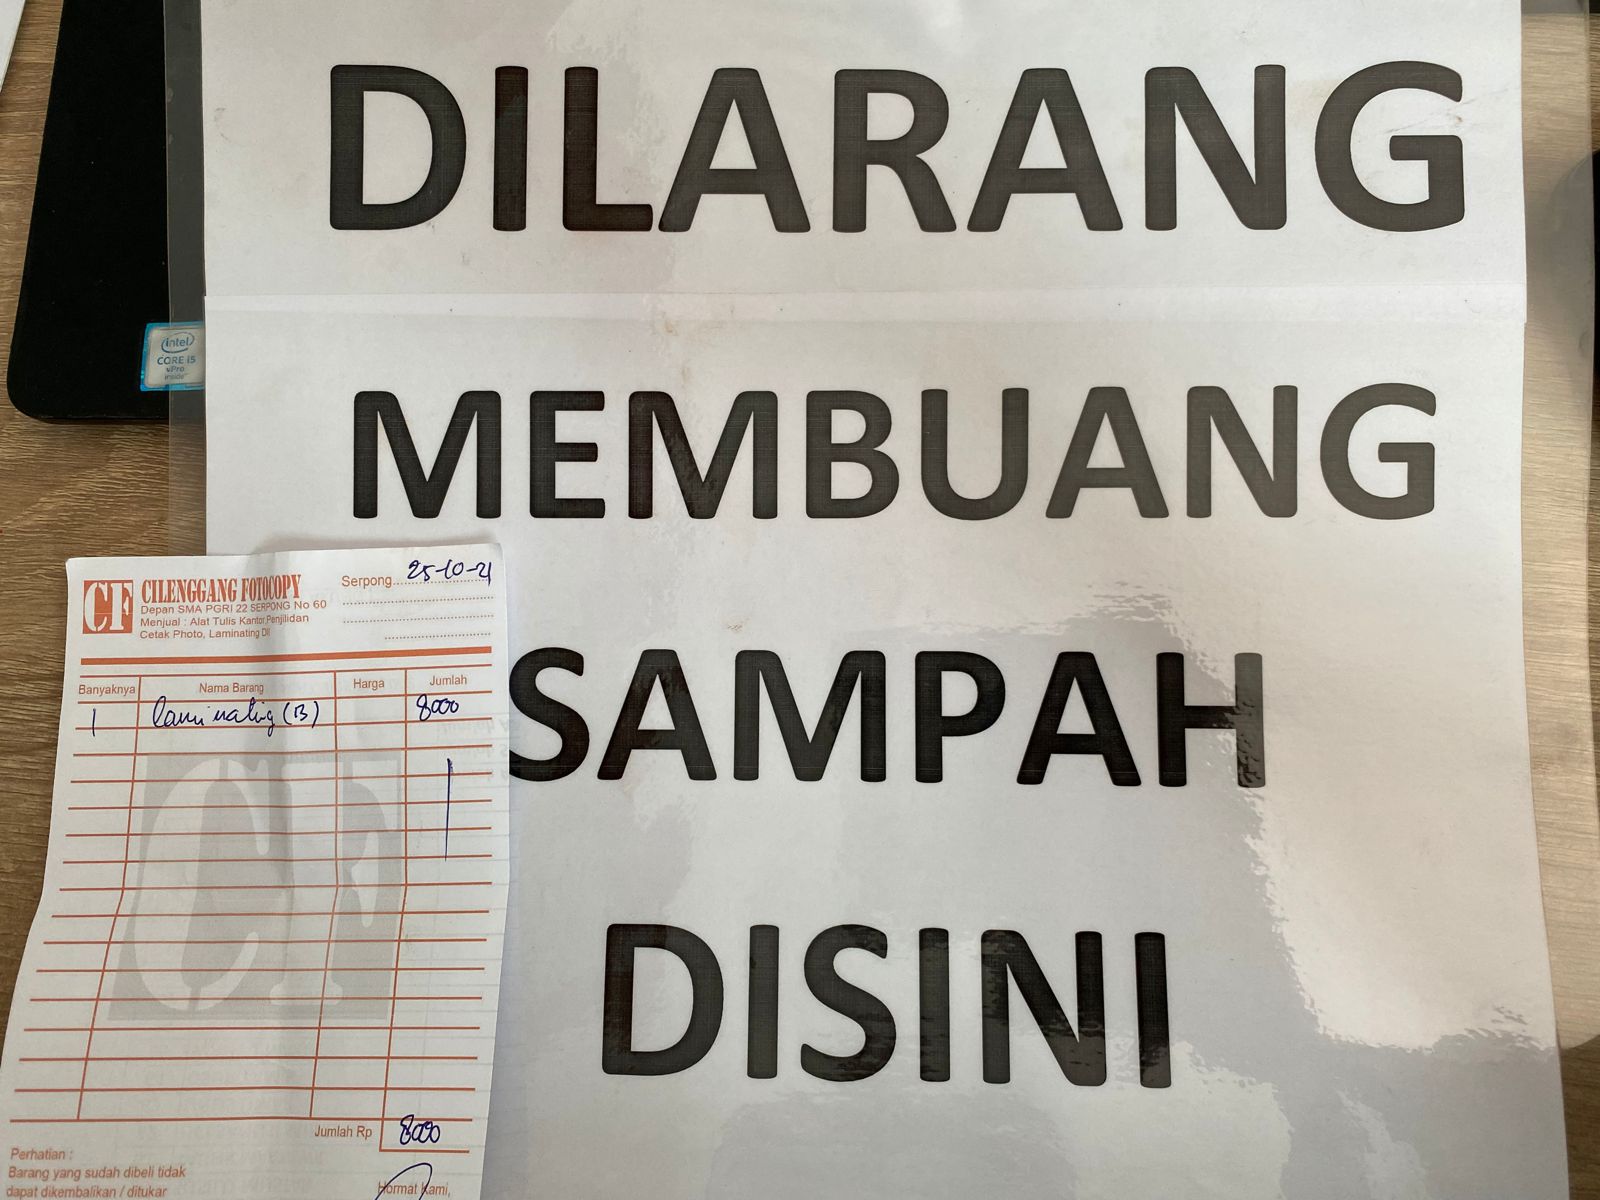 DILARANG
MEMBUANG
SAMPAH
DISINI
intel
CORE i5
vPro
inside
CF
CILENGGANG FOTOCOPY
Depan SMA PGRI 22 SERPONG No 60
Menjual : Alat Tulis Kantor,Penjilidan
Cetak Photo, Laminating Dll
Serpong 25-10-21
Banyaknya Nama Barang Harga Jumlah
1 laminating (B) 8000
CF
Jumlah Rp 8000
Perhatian :
Barang yang sudah dibeli tidak
dapat dikembalikan / ditukar
Hormat Kami,